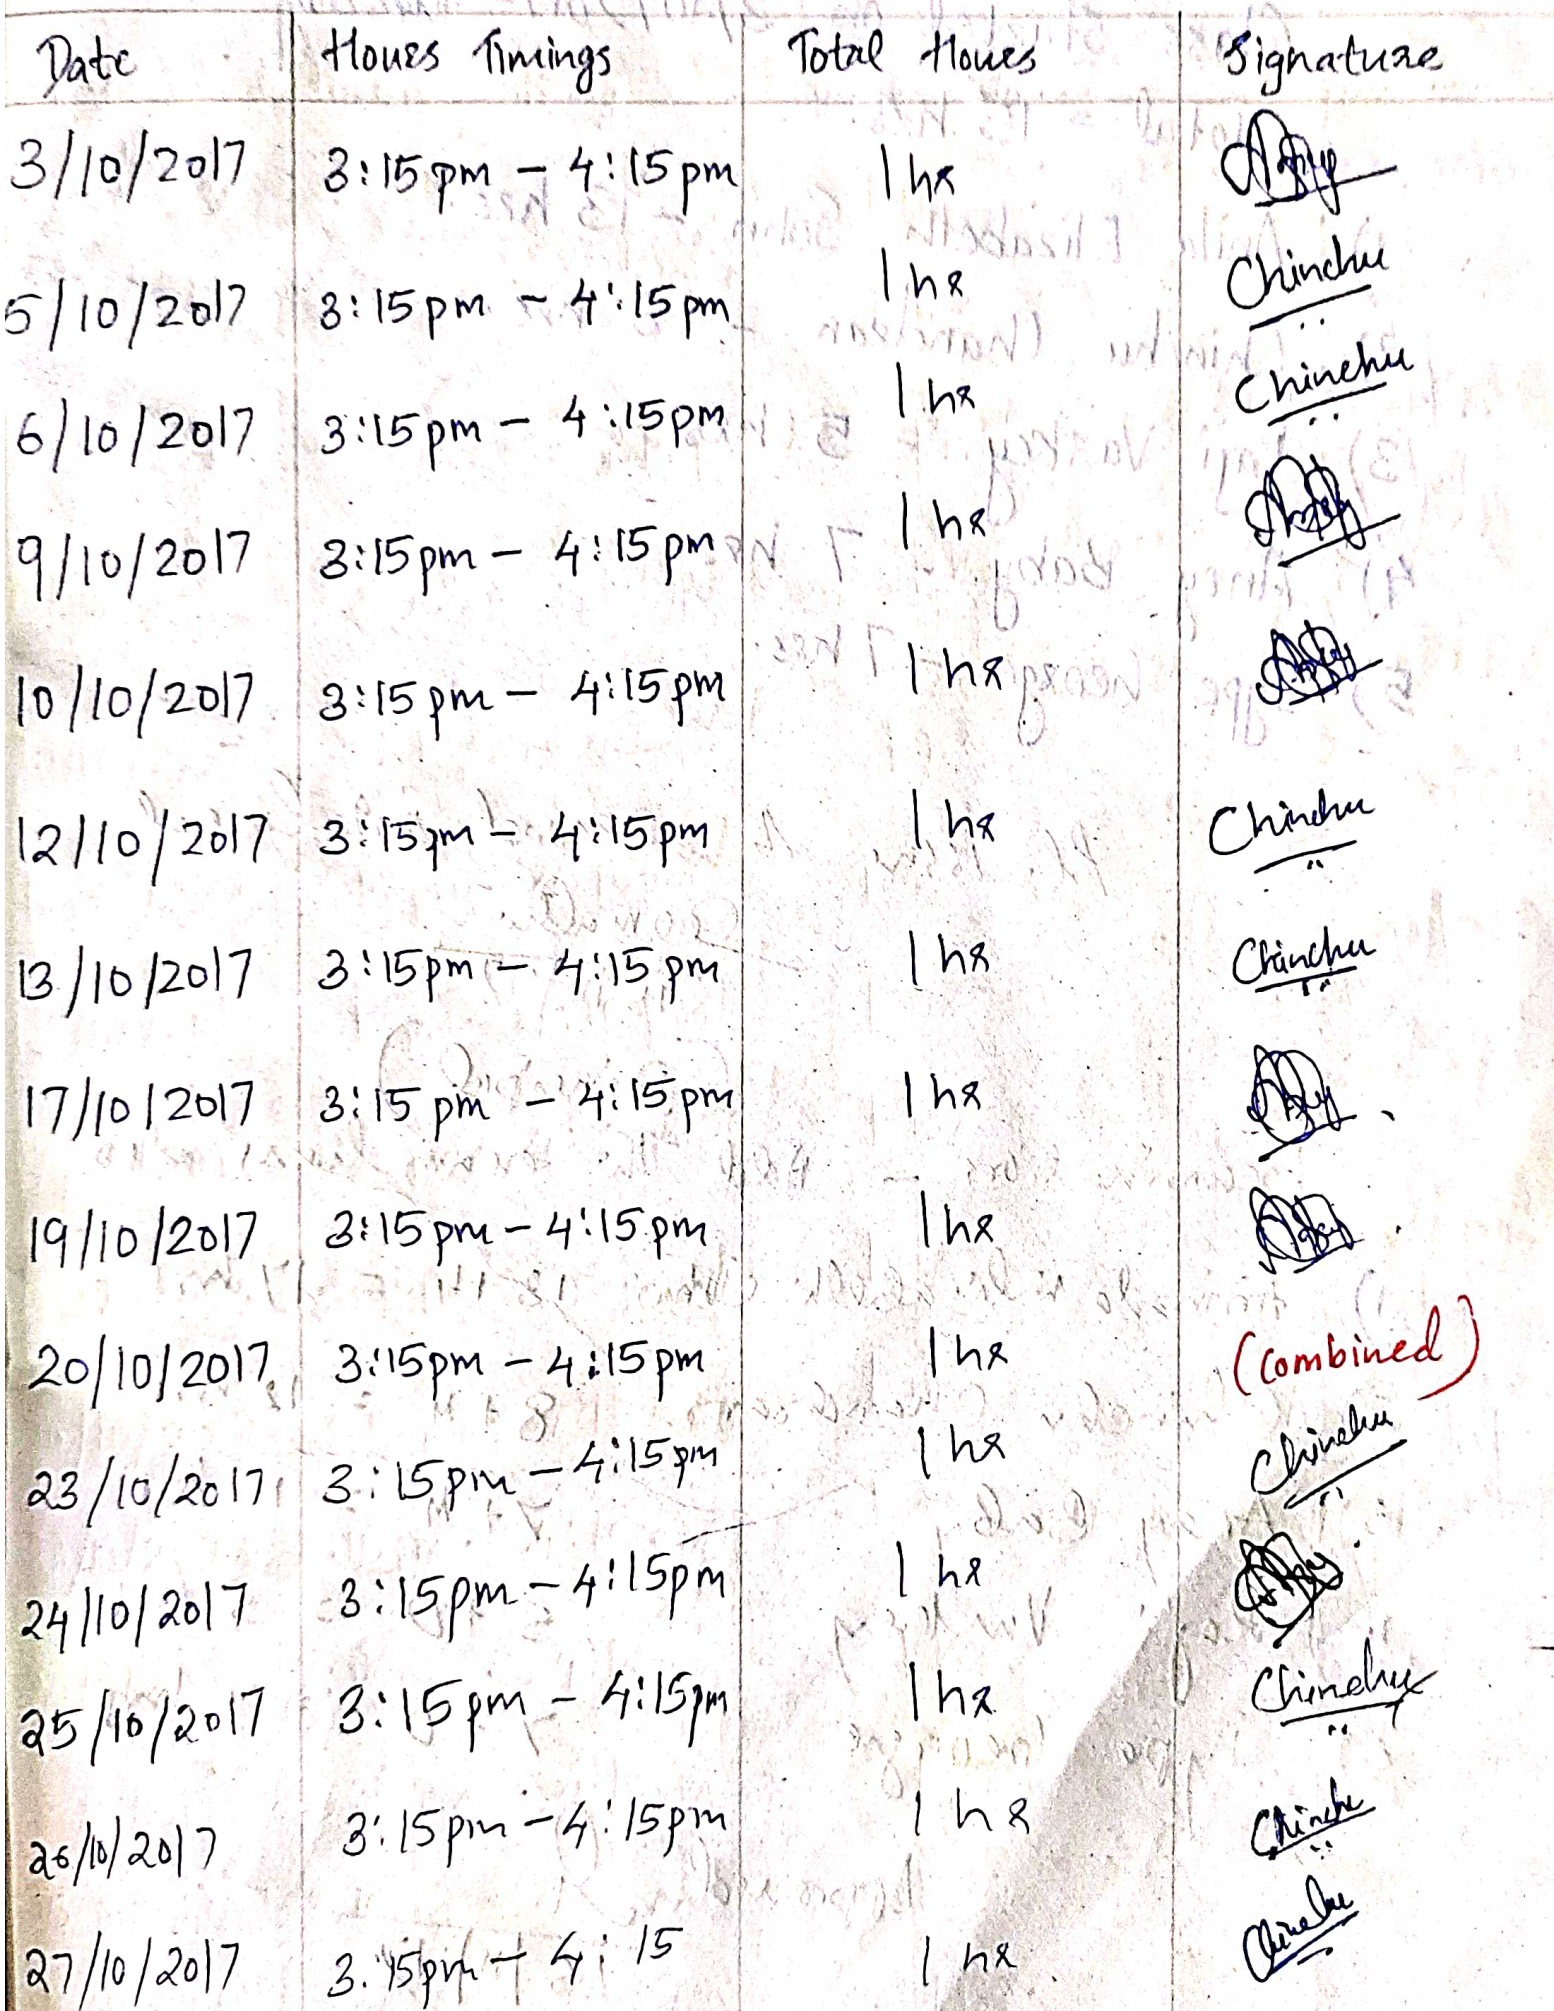 Date Hours Timings Total Hours Signature
3/10/2017 3:15pm - 4:15pm 1 hr
5/10/2017 3:15pm - 4:15pm 1 hr Chinchu
6/10/2017 3:15pm - 4:15pm 1 hr Chinchu
9/10/2017 3:15pm - 4:15pm 1 hr
10/10/2017 3:15pm - 4:15pm 1 hr
12/10/2017 3:15pm - 4:15pm 1 hr Chinchu
13/10/2017 3:15pm - 4:15pm 1 hr Chinchu
17/10/2017 3:15pm - 4:15pm 1 hr
19/10/2017 3:15pm - 4:15pm 1 hr
20/10/2017 3:15pm - 4:15pm 1 hr (combined)
23/10/2017 3:15pm - 4:15pm 1 hr Chinchu
24/10/2017 3:15pm - 4:15pm 1 hr
25/10/2017 3:15pm - 4:15pm 1 hr Chinchu
26/10/2017 3:15pm - 4:15pm 1 hr Chinchu
27/10/2017 3.15pm - 4:15 1 hr Chinchu